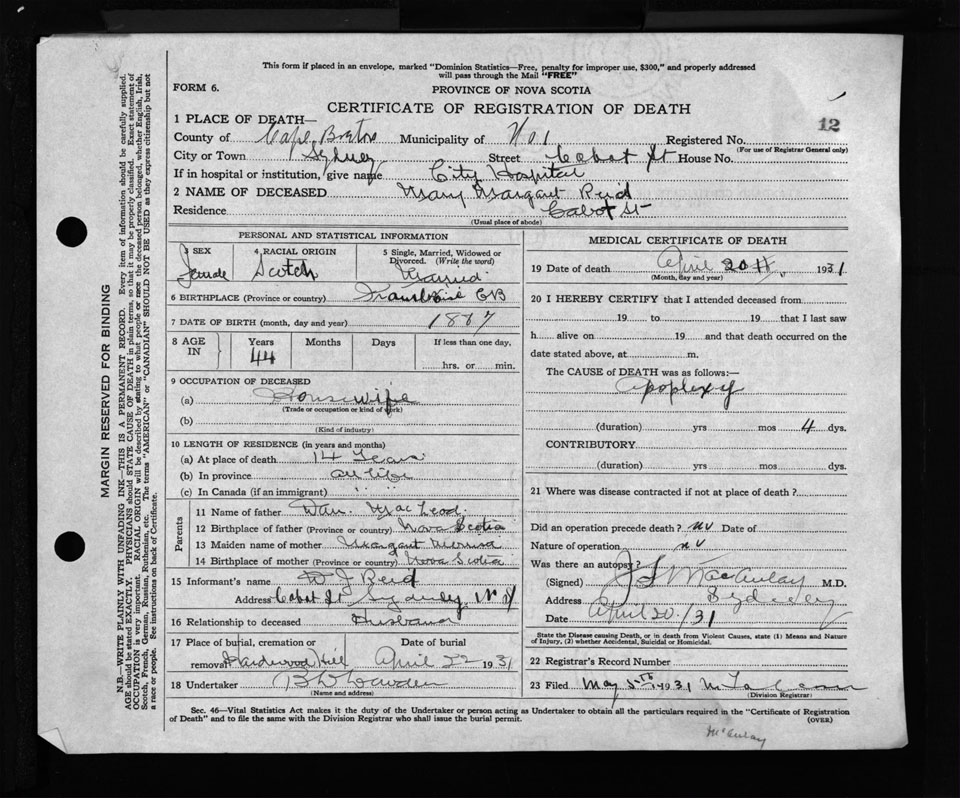 This form if placed in an envelope, marked "Dominion Statistics—Free, penalty for improper use, $300," and properly addressed
will pass through the Mail "FREE"
FORM 6.
PROVINCE OF NOVA SCOTIA
CERTIFICATE OF REGISTRATION OF DEATH
12
1 PLACE OF DEATH—
County of Cape Breton Municipality of No 1 Registered No.
(For use of Registrar General only)
City or Town Sydney Street Cabot St House No.
If in hospital or institution, give name City Hospital
2 NAME OF DECEASED Mary Margaret Reid
Residence Cabot St
(Usual place of abode)
PERSONAL AND STATISTICAL INFORMATION
3 SEX 4 RACIAL ORIGIN 5 Single, Married, Widowed or
Divorced. (Write the word)
Female Scotch Married
6 BIRTHPLACE (Province or country) CB
7 DATE OF BIRTH (month, day and year) 1887
8 AGE IN Years Months Days If less than one day,
44 hrs. or min.
9 OCCUPATION OF DECEASED
(a) Housewife
(Trade or occupation or kind of work)
(b)
(Kind of industry)
10 LENGTH OF RESIDENCE (in years and months)
(a) At place of death 14 Years
(b) In province all life
(c) In Canada (if an immigrant) " "
Parents
11 Name of father Dan. MacLeod
12 Birthplace of father (Province or country) Nova Scotia
13 Maiden name of mother Margaret
14 Birthplace of mother (Province or country) Nova Scotia
15 Informant's name W J Reid
Address Cabot St Sydney N S
16 Relationship to deceased Husband
17 Place of burial, cremation or Date of burial
removal Hardwood Hill April 22 1931
18 Undertaker
(Name and address)
MEDICAL CERTIFICATE OF DEATH
19 Date of death April 20th, 1931
(Month, day and year)
20 I HEREBY CERTIFY that I attended deceased from
19 to 19 that I last saw
h alive on 19 and that death occurred on the
date stated above, at m.
The CAUSE of DEATH was as follows:—
Apoplexy
(duration) yrs mos 4 dys.
CONTRIBUTORY
(duration) yrs mos dys.
21 Where was disease contracted if not at place of death?
Did an operation precede death? no Date of
Nature of operation no
Was there an autopsy?
(Signed) MacAulay M.D.
Address Sydney
Date April 20/31
State the Disease causing Death, or in death from Violent Causes, state (1) Means and Nature
of Injury, (2) whether Accidental, Suicidal or Homicidal.
22 Registrar's Record Number
23 Filed May 5th 1931
Division Registrar
Sec. 46—Vital Statistics Act makes it the duty of the Undertaker or person acting as Undertaker to obtain all the particulars required in the "Certificate of Registration
of Death" and to file the same with the Division Registrar who shall issue the burial permit. (OVER)
McAulay
MARGIN RESERVED FOR BINDING
N.B.—WRITE PLAINLY WITH UNFADING INK—THIS IS A PERMANENT RECORD. Every item of information should be carefully supplied.
AGE should be stated EXACTLY. PHYSICIANS should STATE CAUSE OF DEATH in plain terms, so that it may be properly classified. Exact statement of
OCCUPATION is very important. RACIAL ORIGIN will be described by stating to what people or race the deceased person belonged, whether English, Irish,
Scotch, French, German, Russian, Ruthenian, etc. The terms "AMERICAN" or "CANADIAN" SHOULD NOT BE USED as they express citizenship but not
a race or people. See instructions on back of Certificate.